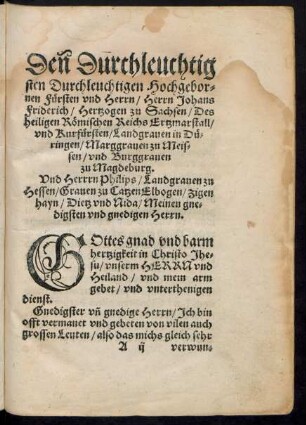 Den Durchleuchtig
sten Durchleuchtigen Hochgebor-
nen Fürsten vnd Herrn/ Herrn Johans
Friderich/ Hertzogen zu Sachsen/ Des
heiligen Römischen Reichs Ertzmarschall/
vnd Kurfürsten/ Landgrauen in Dü-
ringen/ Marggrauen zu Meis-
sen/ vnd Burggrauen
zu Magdeburg.
Vnd Herrrn Philips/ Landgrauen zu
Hessen/ Grauen zu Catzen Elbogen/ Zigen
hayn/ Dietz vnd Nida/ Meinen gne-
digsten vnd gnedigen Herrn.
GOttes gnad vnd barm
hertzigkeit in Christo Jhe-
su/ vnserm HERRN vnd
Heiland/ vnd mein arm
gebet/ vnd vnterthenigen
dienst.
Gnedigster vñ gnedige Herrn/ Ich bin
offt vermanet vnd gebeten von vilen auch
grossen Leuten/ also das michs gleich sehr
A ij verwun-